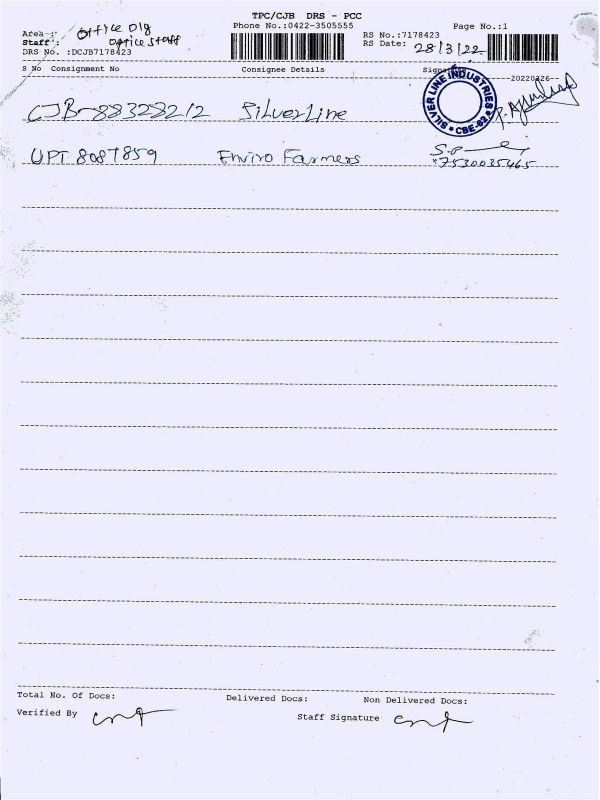 TPC/CJB DRS - PCC
Phone No.:0422-3505555
Page No.:1
Area : Office Dlg
Staff : Office Staff
DRS No. :DCJB7178423
RS No.:7178423
RS Date: 28/3/22
S No Consignment No Consignee Details
-20220326-
CJB-88328212 SilverLine
SILVER LINE INDUSTRIES
* CBE-62 *
UPT 8087859 Enviro Farmers
7530035465
Total No. Of Docs: Delivered Docs: Non Delivered Docs:
Verified By
Staff Signature